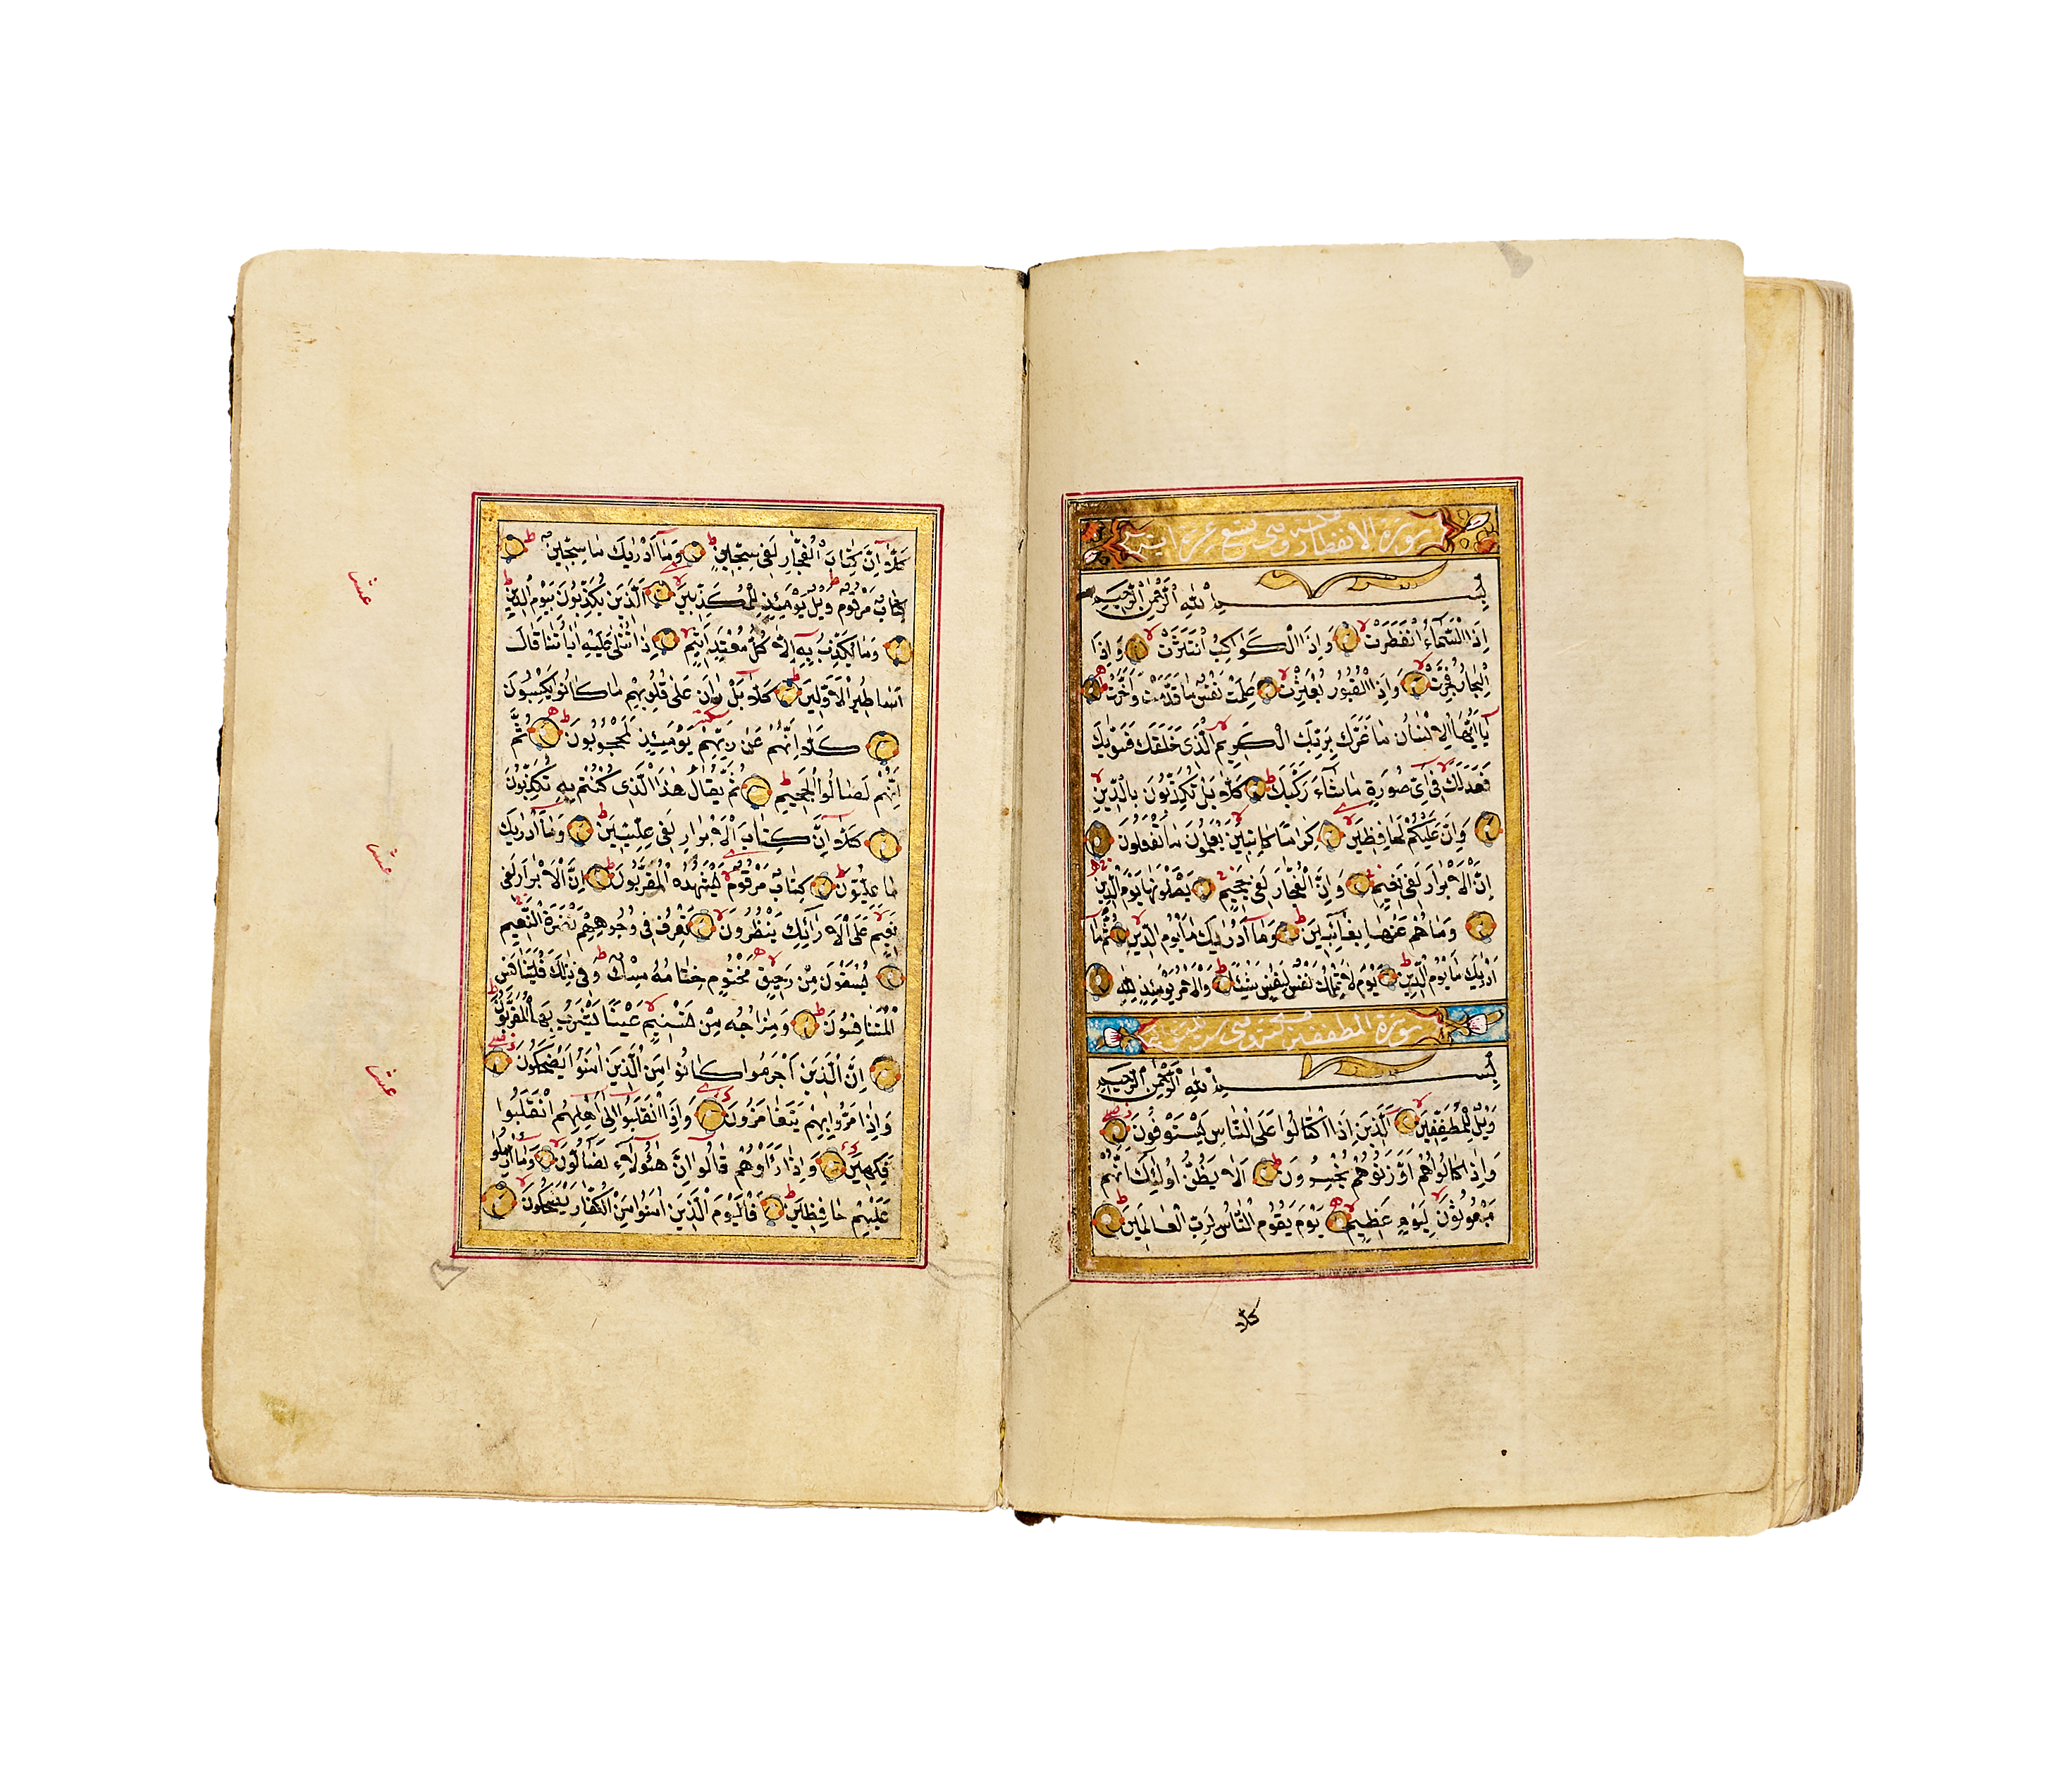 سورة الانفطار وهى تسع عشر اية
بِسْمِ اللهِ الرَّحْمٰنِ الرَّحِيمِ
اِذَا السَّمَآءُ انْفَطَرَتْ وَاِذَا الْكَوَاكِبُ انْتَثَرَتْ وَاِذَا
الْبِحَارُ فُجِّرَتْ وَاِذَا الْقُبُورُ بُعْثِرَتْ عَلِمَتْ نَفْسٌ مَا قَدَّمَتْ وَاَخَّرَتْ
يَآ اَيُّهَا الْاِنْسَانُ مَا غَرَّكَ بِرَبِّكَ الْكَرِيمِ الَّذِى خَلَقَكَ فَسَوّٰيكَ
فَعَدَلَكَ فِىٓ اَىِّ صُورَةٍ مَا شَآءَ رَكَّبَكَ كَلَّا بَلْ تُكَذِّبُونَ بِالدِّينِ
وَاِنَّ عَلَيْكُمْ لَحَافِظِينَ كِرَامًا كَاتِبِينَ يَعْلَمُونَ مَا تَفْعَلُونَ
اِنَّ الْاَبْرَارَ لَفِى نَعِيمٍ وَاِنَّ الْفُجَّارَ لَفِى جَحِيمٍ يَصْلَوْنَهَا يَوْمَ الدِّينِ
وَمَا هُمْ عَنْهَا بِغَآئِبِينَ وَمَآ اَدْرٰيكَ مَا يَوْمُ الدِّينِ ثُمَّ مَآ
اَدْرٰيكَ مَا يَوْمُ الدِّينِ يَوْمَ لَا تَمْلِكُ نَفْسٌ لِنَفْسٍ شَيْئًا وَالْاَمْرُ يَوْمَئِذٍ لِلّٰهِ
سورة المطففين
بِسْمِ اللهِ الرَّحْمٰنِ الرَّحِيمِ
وَيْلٌ لِلْمُطَفِّفِينَ اَلَّذِينَ اِذَا اكْتَالُوا عَلَى النَّاسِ يَسْتَوْفُونَ
وَاِذَا كَالُوهُمْ اَوْ وَزَنُوهُمْ يُخْسِرُونَ اَلَا يَظُنُّ اُولٰٓئِكَ اَنَّهُمْ
مَبْعُوثُونَ لِيَوْمٍ عَظِيمٍ يَوْمَ يَقُومُ النَّاسُ لِرَبِّ الْعَالَمِينَ
كلا
كَلَّآ اِنَّ كِتَابَ الْفُجَّارِ لَفِى سِجِّينٍ وَمَآ اَدْرٰيكَ مَا سِجِّينٌ
كِتَابٌ مَرْقُومٌ وَيْلٌ يَوْمَئِذٍ لِلْمُكَذِّبِينَ اَلَّذِينَ يُكَذِّبُونَ بِيَوْمِ الدِّينِ
وَمَا يُكَذِّبُ بِهِ اِلَّا كُلُّ مُعْتَدٍ اَثِيمٍ اِذَا تُتْلٰى عَلَيْهِ اٰيَاتُنَا قَالَ
اَسَاطِيرُ الْاَوَّلِينَ كَلَّا بَلْ رَانَ عَلٰى قُلُوبِهِمْ مَا كَانُوا يَكْسِبُونَ
كَلَّآ اِنَّهُمْ عَنْ رَبِّهِمْ يَوْمَئِذٍ لَمَحْجُوبُونَ ثُمَّ
اِنَّهُمْ لَصَالُوا الْجَحِيمِ ثُمَّ يُقَالُ هٰذَا الَّذِى كُنْتُمْ بِهِ تُكَذِّبُونَ
كَلَّآ اِنَّ كِتَابَ الْاَبْرَارِ لَفِى عِلِّيِّينَ وَمَآ اَدْرٰيكَ
مَا عِلِّيُّونَ كِتَابٌ مَرْقُومٌ يَشْهَدُهُ الْمُقَرَّبُونَ اِنَّ الْاَبْرَارَ لَفِى
نَعِيمٍ عَلَى الْاَرَآئِكِ يَنْظُرُونَ تَعْرِفُ فِى وُجُوهِهِمْ نَضْرَةَ النَّعِيمِ
يُسْقَوْنَ مِنْ رَحِيقٍ مَخْتُومٍ خِتَامُهُ مِسْكٌ وَفِى ذٰلِكَ فَلْيَتَنَافَسِ
الْمُتَنَافِسُونَ وَمِزَاجُهُ مِنْ تَسْنِيمٍ عَيْنًا يَشْرَبُ بِهَا الْمُقَرَّبُونَ
اِنَّ الَّذِينَ اَجْرَمُوا كَانُوا مِنَ الَّذِينَ اٰمَنُوا يَضْحَكُونَ
وَاِذَا مَرُّوا بِهِمْ يَتَغَامَزُونَ وَاِذَا انْقَلَبُوٓا اِلٰىٓ اَهْلِهِمُ انْقَلَبُوا
فَكِهِينَ وَاِذَا رَاَوْهُمْ قَالُوٓا اِنَّ هٰٓؤُلَآءِ لَضَآلُّونَ وَمَآ اُرْسِلُوا
عَلَيْهِمْ حَافِظِينَ فَالْيَوْمَ الَّذِينَ اٰمَنُوا مِنَ الْكُفَّارِ يَضْحَكُونَ
عشر
عشر
عشر